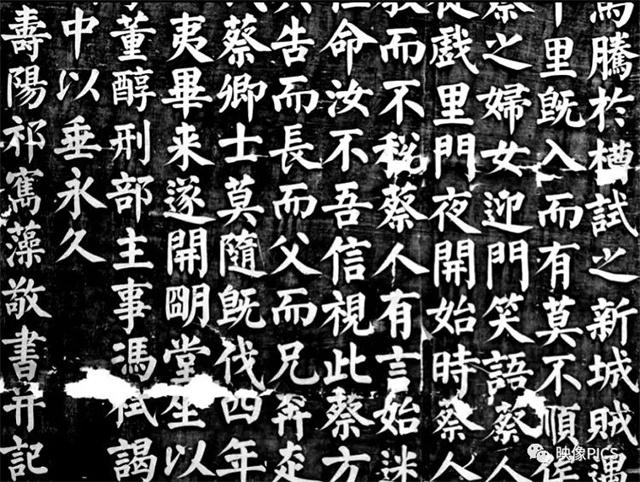 馬騰於槽試之新城賊遇
里既入而有莫不順俟
蔡之婦女迎門笑語蔡人
從戲里門夜開始時蔡人
教而不税蔡人有言始迷
命汝不吾信視此蔡方
告而長而父而兄奔走
蔡卿士莫隨既伐四年
夷畢来遂開朙堂坐以
董醇刑部主事馮栻謁
中以垂永久
壽陽祁寯藻敬書并記
映像PICS